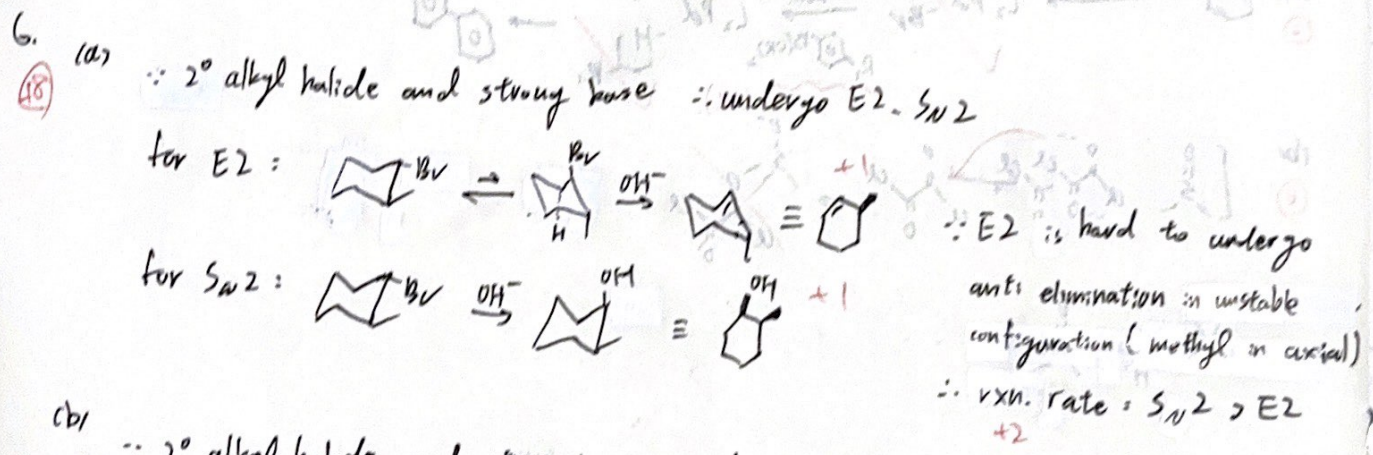 6.
(a)
48
∵ 2° alkyl halide and strong base ∴ undergo E2. SN2
for E2 : Br ⇌ Br H OH⁻ → ≡ +1
∵ E2 is hard to undergo
anti elimination in unstable
configuration (methyl in axial)
for SN2 : Br OH⁻ → OH ≡ OH +1
∴ rxn. rate : SN2 > E2
+2
(b)
∵ 2° alkyl halide and